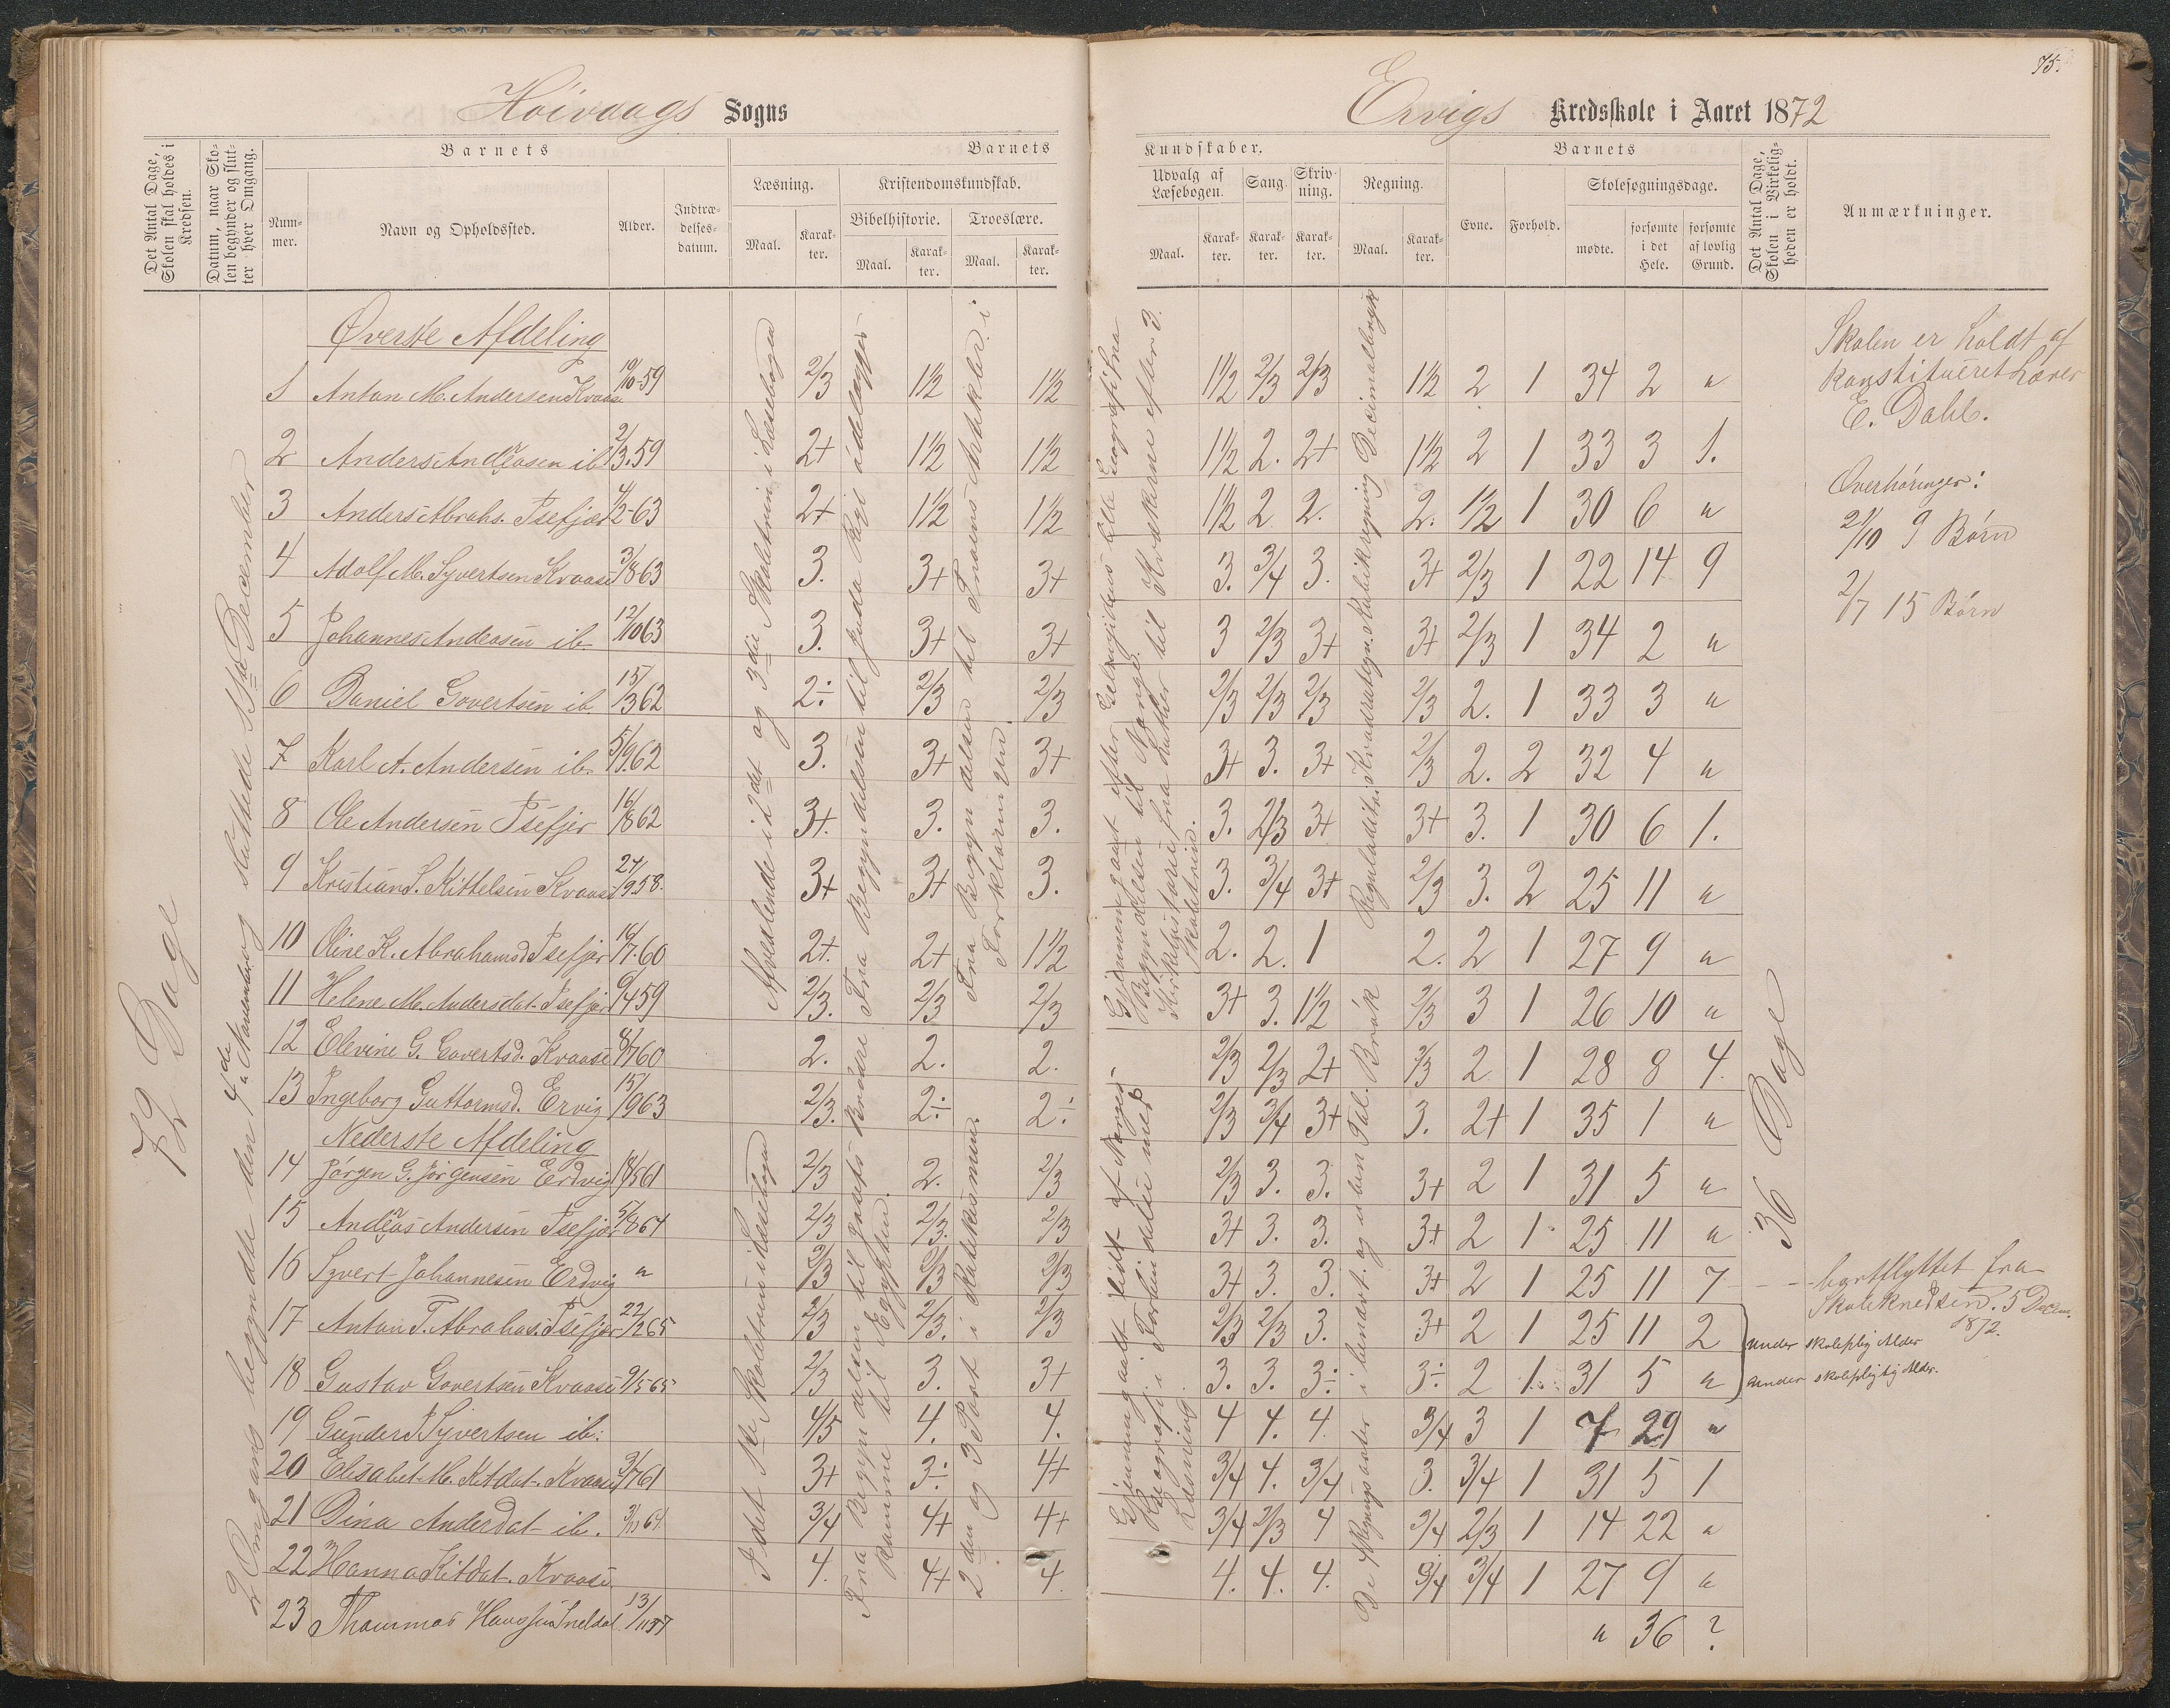 75.
Høivaags Sogns
Ervigs Kredsskole i Aaret 1872
Det Antal Dage, Skolen skal holdes i Kredsen.
Datum, naar Skolen begynder og slutter hver Omgang.
Barnets
Nummer.
Navn og Opholdssted.
Alder.
Indtrædelsesdatum.
Barnets
Læsning.
Maal.
Karakter.
Kristendomskundskab.
Bibelhistorie.
Maal.
Karakter.
Troeslære.
Maal.
Karakter.
Kundskaber.
Udvalg af Læsebogen.
Maal.
Karakter.
Sang.
Karakter.
Skrivning.
Karakter.
Regning.
Maal.
Karakter.
Barnets
Evne.
Forhold.
Skolesøgningsdage.
mødte.
forsømte i det Hele.
forsømte af lovlig Grund.
Det Antal Dage, Skolen i Virkeligheden er holdt.
Anmærkninger.
72 Dage
2 Omgange begyndte den 4de November og sluttede 11te December
Øverste Afdeling
1 Anton M. Andersen Kvaase 19/10 59 2/3 1 1/2 1 1/2 1 1/2 2/3 2/3 1 1/2 2 1 34 2 "
2 Anders Andreasen ib. 2/3 59 2+ 1 1/2 1 1/2 1 1/2 2. 2+ 1 1/2 2 1 33 3 1.
3 Anders Abrahs. Isefjær 4/2 63 2+ 1 1/2 1 1/2 1 1/2 2 2. 2. 1/2 1 30 6 "
4 Adolf M. Syvertsen Kvaase 3/8 63 3. 3+ 3+ 3. 3/4 3. 3+ 2/3 1 22 14 9
5 Johannes Andersen ib. 12/10 63 3. 3+ 3+ 3 2/3 3+ 3+ 2/3 1 34 2 "
6 Daniel Govertsen ib. 15/3 62 2÷ 2/3 2/3 2/3 2/3 2/3 2/3 2. 1 33 3 "
7 Karl A. Andersen ib. 5/9 62 3. 3+ 3+ 3+ 3. 3+ 2/3 2. 2 32 4 "
8 Ole Andersen Isefjær 16/8 62 3+. 3. 3. 3. 2/3 3+ 3+ 3. 1 30 6 1.
9 Kristian S. Kittelsen Kvaase 27/9 58. 3+ 3+ 3. 3. 3/4 3+ 2/3 3. 2 25 11 "
10 Oline K. Abrahamsd Isefjær 16/7 60 2+. 2+ 1 1/2 2. 2. 1 2. 2 1 27 9 "
11 Helene M. Andersdat. Isefjær 6/4 59 2/3. 2/3 2/3 3+ 3. 1 1/2 2/3 3 1 26 10 "
12 Elevine G. Govertsd. Kvaase 8/7 60 2. 2. 2. 2/3 2/3 2+ 2/3 2 1 28 8 4.
13 Ingeborg Guttormsd. Ervig 15/9 63 2/3. 2÷ 2÷ 2/3 3/4 3+ 3. 2+ 1 35 1 "
Nederste Afdeling
14 Jørgen G. Jørgensen Erdvig 18/5 61 2/3 2. 2/3 2/3 3. 3. 3+ 2 1 31 5 "
15 Andreas Andersen Isefjær 5/8 64 2/3 2/3. 2/3 3+ 3. 3. 3+ 2 1 25 11 "
16 Syvert Johannesen Erdvig " 2/3 2/3 2/3 3+ 3. 3. 3+ 2 1 25 11 7
17 Anton T. Abrahas. Isefjær 22/2 65 2/3 2/3. 2/3 2/3 2/3 3. 3+ 2 1 25 11 2
18 Gustav Govertsen Kvaase 9/5 65 2/3 3. 3+ 3. 3. 3÷ 3÷ 2 1. 31 5 "
19 Gunder Syvertsen ib: 4/5 4. 4. 4 4. 4. 3/4 3 1 7 29 "
20 Elisabet M. Kitdat. Kvaase 3/7 61 3+ 3÷ 4+ 3/4 4. 3/4 3. 3/4 1 31 5 1
21 Dina Andersdat ib. 3/4 4+ 4+ 3/4 2/3 4 3/4 2/3 1 14 22 "
22 Hanna Kitdat. Kvaase 4. 4+ 4. 4. 4. 4. 3/4 3/4 1 27 9 "
23 Thommas 13/11 57 " 36 ?
Afvexlende i 2det og 3die Skoletrin i Læsebogen
I det 1ste Skoletrin i Læsebogen
Fra Begyndelsen til Juda Rigs ødelæggelse
Fra Begyndelsen til Josefs Brødre komme til Egypten.
Fra Begyndelsen til Troens Artikler i Forklaringen.
2den og 3 Part i Katekismen.
Gjennemgaaet Geografi fra Begyndelsen til Norge.
Kirkehistorie fra Luther til Kvækerne efter 3. Skoletrin.
Gjennemgaaet lidt af Norges Geografi i Forbindelse med Læsning
Reguladetri Kvadratregn. Kubikregning Decimalbrøk
De 4 Regningsarter i benævnt. og uben Tal. Brøk
36 Dage
Skolen er holdt af
konstitueret Lærer
E. Dahl.
Overhøringer:
21/10 9 Børn
2/7 15 Børn
bortflyttet fra
Skolekredsen. 5 Decem.
1872.
under skolepligtig Alder
under skolepligtig Alder.